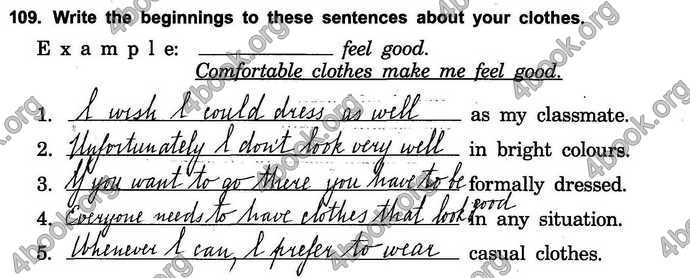 109. Write the beginnings to these sentences about your clothes.
Example: ____________ feel good.
Comfortable clothes make me feel good.
1. I wish I could dress as well as my classmate.
2. Unfortunately I don't look very well in bright colours.
3. If you want to go there you have to be formally dressed.
4. Everyone needs to have clothes that look good in any situation.
5. Whenever I can, I prefer to wear casual clothes.
4book.org